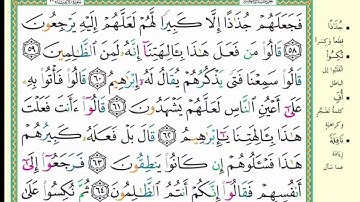 فَجَعَلَهُمْ جُذَٰذًا إِلَّا كَبِيرًا لَّهُمْ لَعَلَّهُمْ إِلَيْهِ يَرْجِعُونَ
٥٨ قَالُوا۟ مَن فَعَلَ هَٰذَا بِـَٔالِهَتِنَآ إِنَّهُۥ لَمِنَ ٱلظَّٰلِمِينَ ٥٩
قَالُوا۟ سَمِعْنَا فَتًى يَذْكُرُهُمْ يُقَالُ لَهُۥٓ إِبْرَٰهِيمُ ٦٠ قَالُوا۟ فَأْتُوا۟ بِهِۦ
عَلَىٰٓ أَعْيُنِ ٱلنَّاسِ لَعَلَّهُمْ يَشْهَدُونَ ٦١ قَالُوٓا۟ ءَأَنتَ فَعَلْتَ
هَٰذَا بِـَٔالِهَتِنَا يَٰٓإِبْرَٰهِيمُ ٦٢ قَالَ بَلْ فَعَلَهُۥ كَبِيرُهُمْ
هَٰذَا فَسْـَٔلُوهُمْ إِن كَانُوا۟ يَنطِقُونَ ٦٣ فَرَجَعُوٓا۟ إِلَىٰٓ
أَنفُسِهِمْ فَقَالُوٓا۟ إِنَّكُمْ أَنتُمُ ٱلظَّٰلِمُونَ ٦٤ ثُمَّ نُكِسُوا۟ عَلَىٰ
جُذَاذًا
قطعاً وكسراً
نُكِسُوا
انقلبوا
إلى الباطل
أُفٍّ
كلمة تضجر
وكراهية
نَافِلَةً